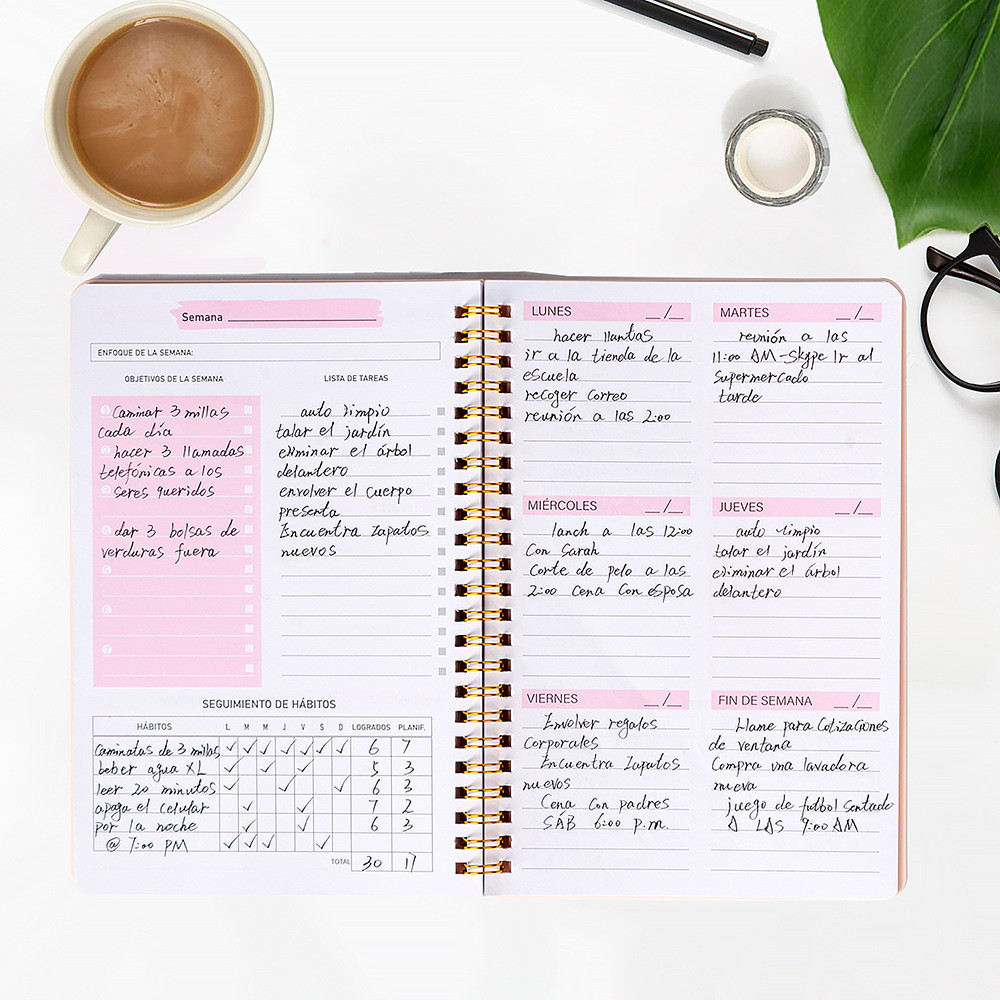 Semana
ENFOQUE DE LA SEMANA:
OBJETIVOS DE LA SEMANA
1 Caminar 3 millas
cada día
2 hacer 3 llamadas
telefónicas a los
3 seres queridos
4 dar 3 bolsas de
verduras fuera
5
6
7
LISTA DE TAREAS
auto limpio
talar el jardín
eliminar el árbol
delantero
envolver el cuerpo
presenta
Encuentra Zapatos
nuevos
SEGUIMIENTO DE HÁBITOS
HÁBITOS L M M J V S D LOGRADOS PLANIF.
Caminatas de 3 millas ✓ ✓ ✓ ✓ ✓ ✓ ✓ 6 7
beber agua XL ✓ ✓ ✓ 5 3
leer 20 minutos ✓ ✓ ✓ 6 3
apaga el celular ✓ ✓ 7 2
por la noche ✓ ✓ 6 3
@ 7:00 PM ✓ ✓ ✓ ✓
TOTAL 30 17
LUNES __/__
hacer llantas
ir a la tienda de la
escuela
recoger correo
reunión a las 2:00
MARTES __/__
reunión a las
11:00 AM-Skype Ir al
supermercado
tarde
MIÉRCOLES __/__
lanch a las 12:00
Con Sarah
Corte de pelo a las
2:00 Cena Con esposa
JUEVES __/__
auto limpio
talar el jardín
eliminar el árbol
delantero
VIERNES __/__
Envolver regalos
Corporales
Encuentra Zapatos
nuevos
Cena Con padres
SÁB 6:00 p.m.
FIN DE SEMANA __/__
Llame para Cotizaciones
de ventana
Compra una lavadora
nueva
juego de futbol Sentado
A LAS 9:00 AM